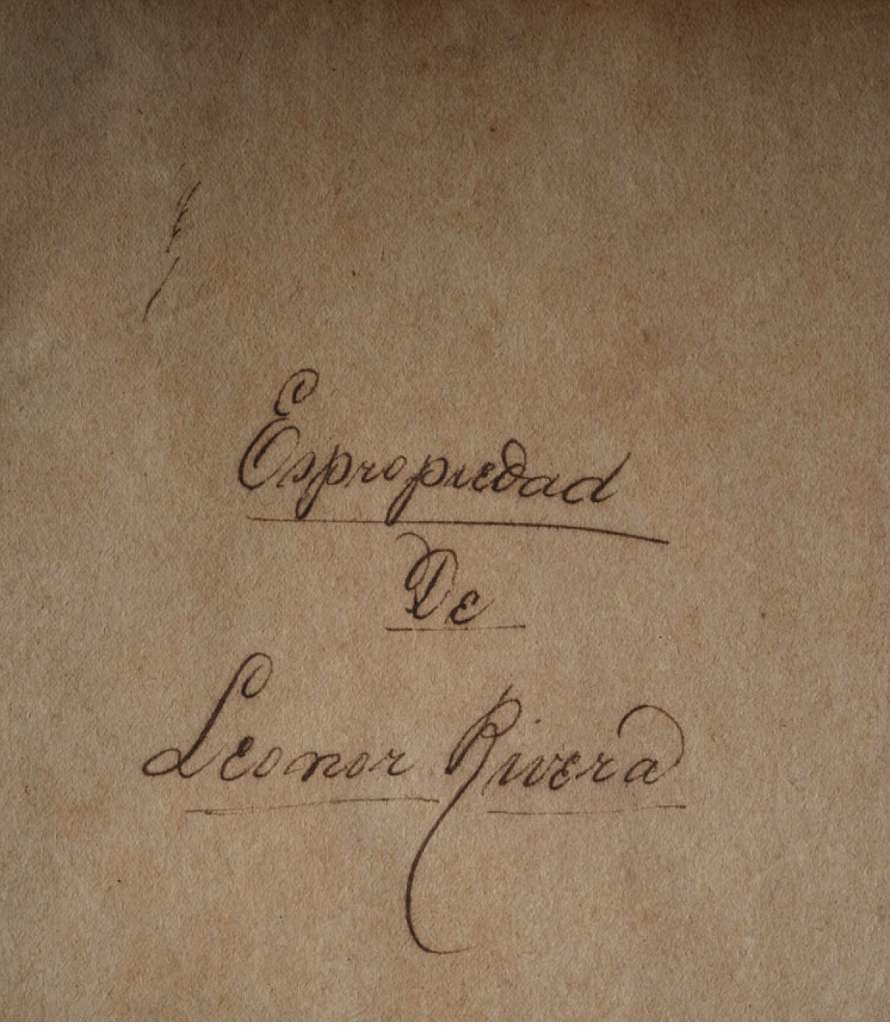 Espropiedad
De
Leonor Rivera